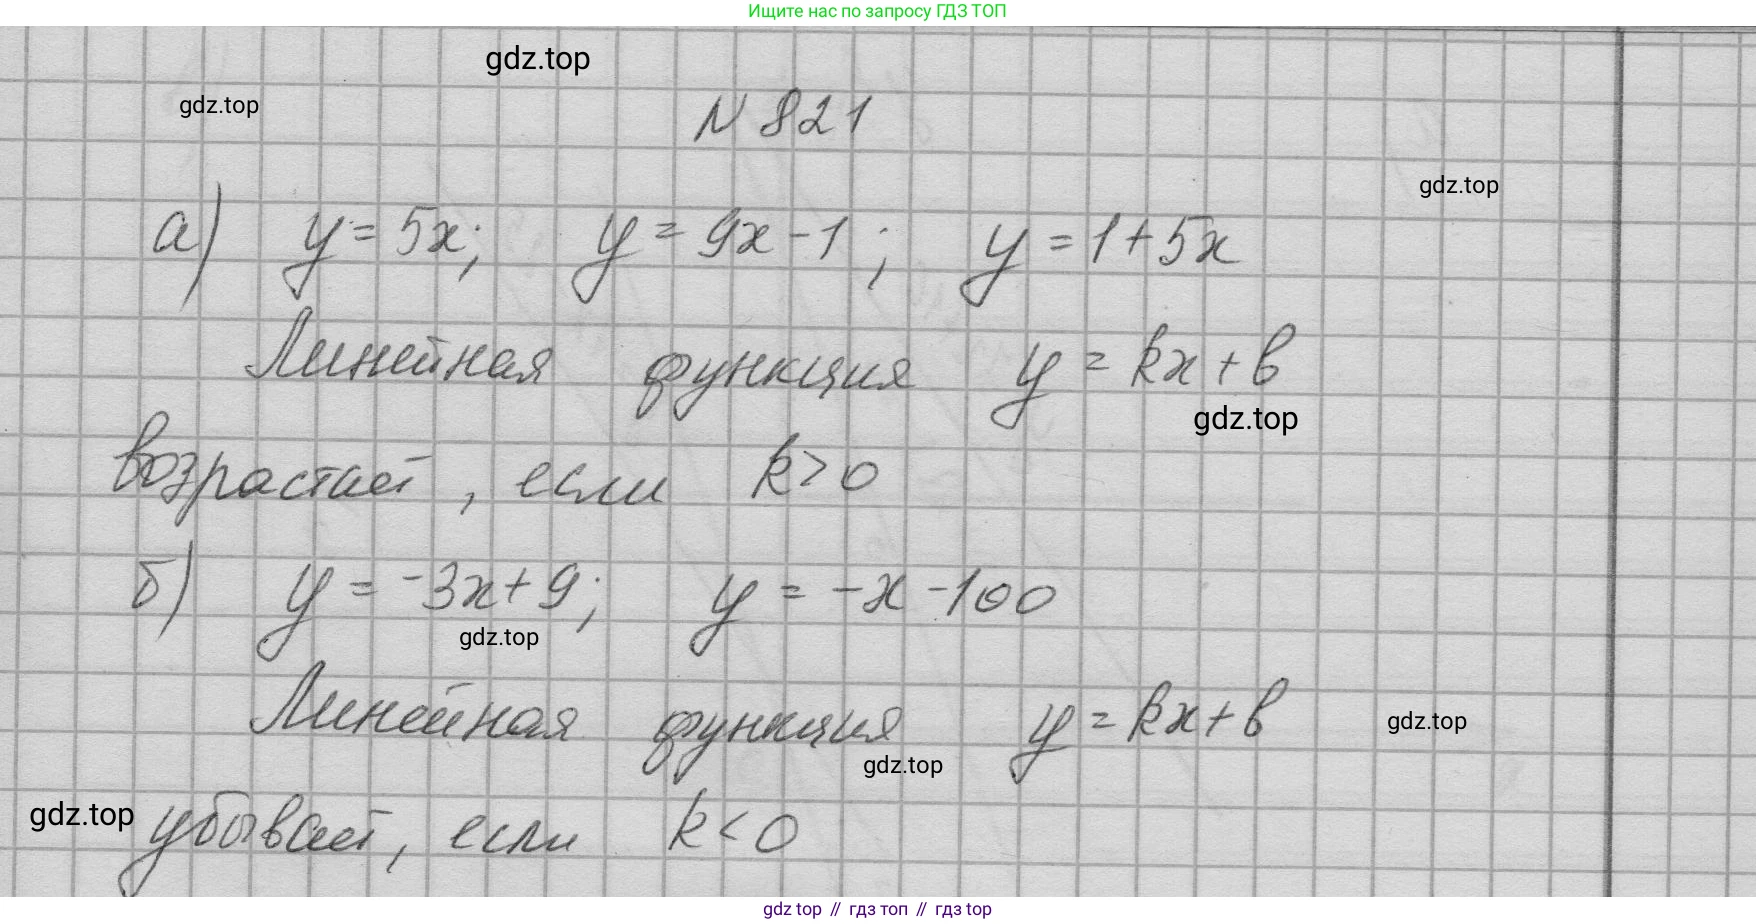 Ищите нас по запросу ГДЗ ТОП
gdz.top
gdz.top
N 821
gdz.top
а) y = 5x; y = 9x - 1; y = 1 + 5x
Линейная функция y = kx + b
gdz.top
возрастает, если k > 0
б) y = -3x + 9; y = -x - 100
gdz.top
Линейная функция y = kx + b
gdz.top
gdz.top
gdz.top
убывает, если k < 0
gdz top // гдз топ // гдз top